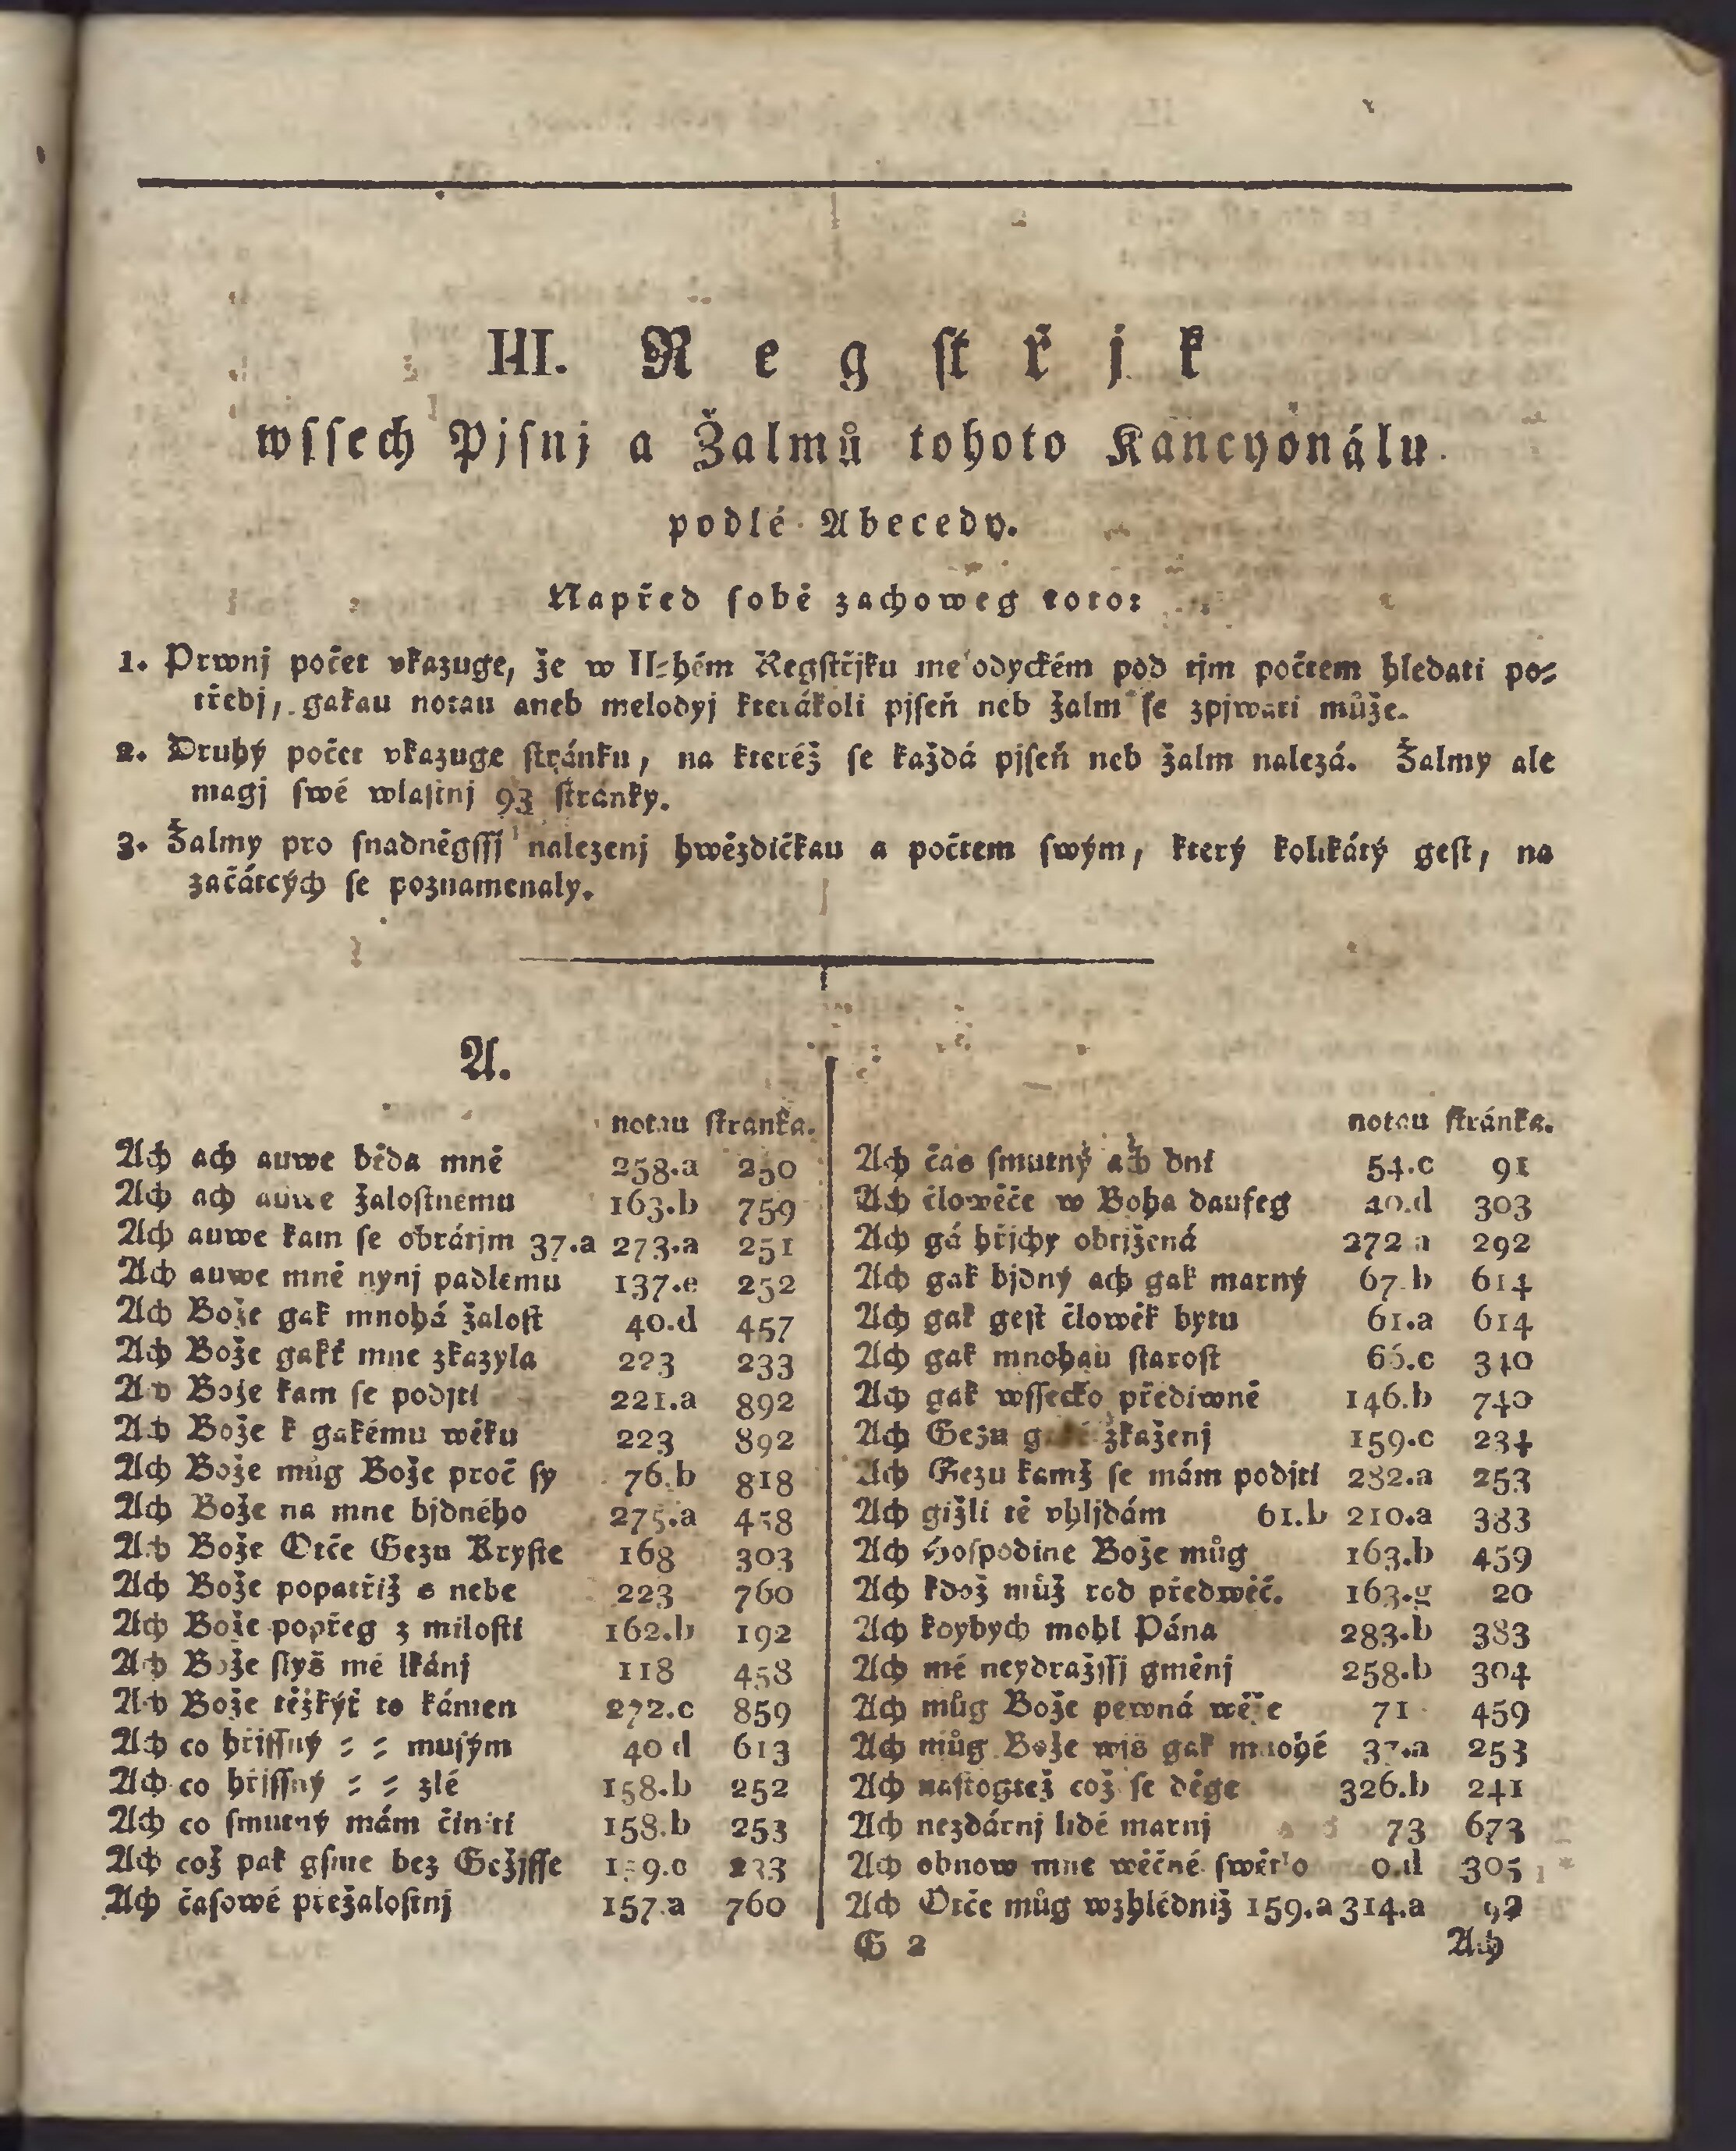 III. Regſtřjk
wſſech Pjſnj a Žalmů tohoto Kancyonálu
podlé Abecedy.
Napřed ſobě zachoweg toto:
1. Prwnj počet vkazuge, že w II-hém Regſtřjku melodyckém pod tjm počtem hledati po-
třebj, gakau notau aneb melodyj kterákoli pjſeň neb žalm ſe zpjwati může.
2. Druhý počet vkazuge ſtránku, na kteréž ſe každá pjſeň neb žalm nalezá. Žalmy ale
magj ſwé wlaſtnj 93 ſtránky.
3. Žalmy pro ſnadněgſſj nalezenj hwězdičkau a počtem ſwým, který kolikátý geſt, na
začátcých ſe poznamenaly.
A.
notau ſtranka.
Ach ach auwe běda mně 258.a 250
Ach ach auwe žaloſtnému 163.b 759
Ach auwe kam ſe obrátjm 37.a 273.a 251
Ach auwe mně nynj padlému 137.e 252
Ach Bože gak mnohá žaloſt 40.d 457
Ach Bože gakť mne zkazyla 223 233
Ach Bože kam ſe podjti 221.a 892
Ach Bože k gakému wěku 223 892
Ach Bože můg Bože proč ſy 76.b 818
Ach Bože na mne bjdného 275.a 458
Ach Bože Otče Gezu Kryſte 168 303
Ach Bože popatřiž s nebe 223 760
Ach Bože popřeg z miloſti 162.b 192
Ach Bože ſlyš mé lkánj 118 458
Ach Bože těžkýť to kámen 272.c 859
Ach co hřjſſný - - muſým 40 d 613
Ach co hřjſſný - - zlé 158.b 252
Ach co ſmutný mám činiti 158.b 253
Ach což pak gſme bez Gežjſſe 159.c 233
Ach čaſowé přežaloſtnj 157.a 760
notau ſtránka.
Ach čas ſmutný ach dni 54.c 91
Ach člowěče w Boha daufeg 40.d 303
Ach gá hřjchy obtjžená 272 a 292
Ach gak bjdný ach gak marný 67.b 614
Ach gak geſt člowěk bytu 61.a 614
Ach gak mnohau ſtaroſt 66.c 340
Ach gak wſſecko přediwně 146.b 740
Ach Gezu zkaženj 159.c 234
Ach Gezu kamž ſe mám podjti 282.a 253
Ach gižli tě vhljdám 61.b 210.a 383
Ach Hoſpodine Bože můg 163.b 459
Ach kdož můž rod předwěč. 163.g 20
Ach kdybych mohl Pána 283.b 383
Ach mé neydražſſj gměnj 258.b 304
Ach můg Bože pewná wěže 71 459
Ach můg Bože wjs gak mnohé 37.a 253
Ach naſtogtež což ſe děge 326.b 241
Ach nezdárnj lidé marnj 73 673
Ach obnow mne wěčné ſwětlo 0.d 305
Ach Otče můg wzhlédniž 159.a 314.a 92
G 2 Ach